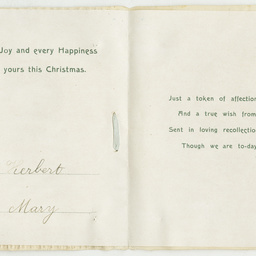 Joy and every Happiness
yours this Christmas.
Herbert
Mary
Just a token of affection
And a true wish from
Sent in loving recollection
Though we are to-day